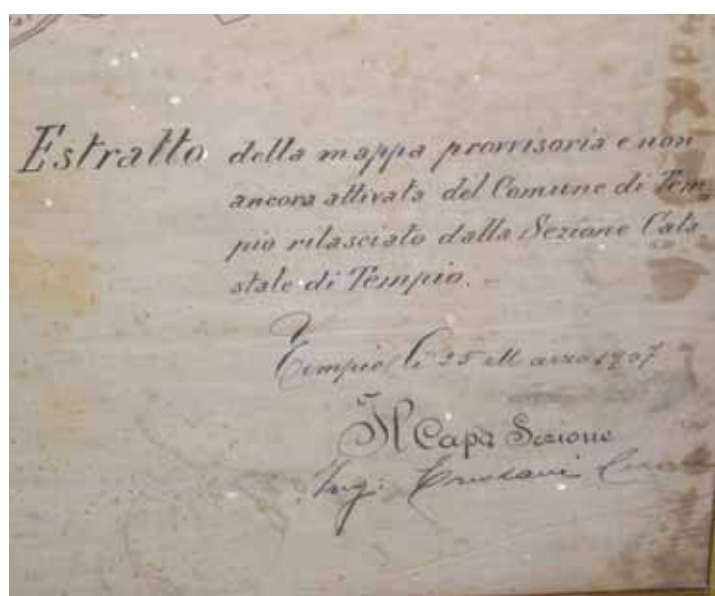 Estratto della mappa provvisoria e non
ancora attivata del Comune di Tem
pio rilasciato dalla Sezione Cata
stale di Tempio.
Tempio li 25 Marzo 1907
Il Capo Sezione
Ing.